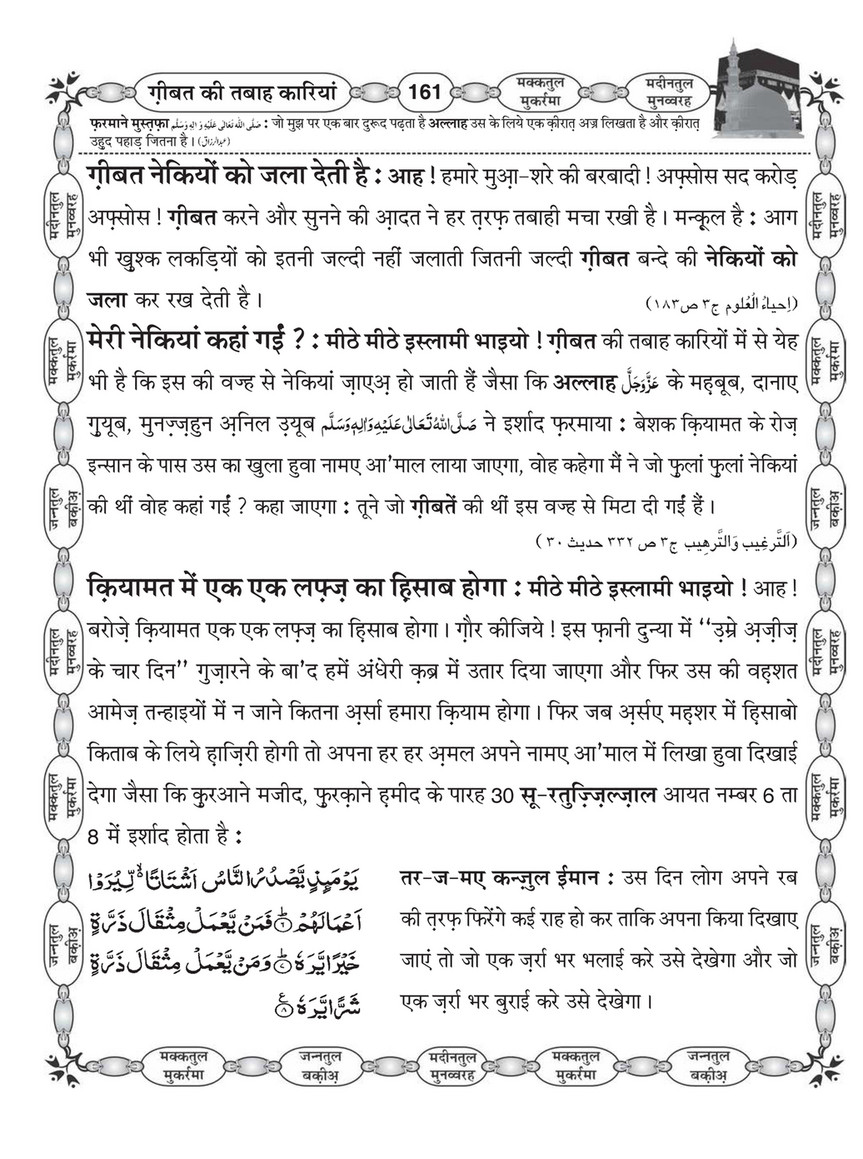 ग़ीबत की तबाह कारियां
161
मक्कतुल
मुकर्रमा
मदीनतुल
मुनव्वरह
फ़रमाने मुस्त़फ़ा صَلَّى اللهُ تَعَالٰى عَلَيْهِ وَاٰلِهٖ وَسَلَّم : जो मुझ पर एक बार दुरूद पढ़ता है अल्लाह उस के लिये एक क़ीरात़ अज्र लिखता है और क़ीरात़
उहुद पहाड़ जितना है। (عبدالرزاق)
ग़ीबत नेकियों को जला देती है : आह ! हमारे मुआ़-शरे की बरबादी ! अफ़्सोस सद करोड़
अफ़्सोस ! ग़ीबत करने और सुनने की आ़दत ने हर त़रफ़ तबाही मचा रखी है। मन्क़ूल है : आग
भी ख़ुश्क लकड़ियों को इतनी जल्दी नहीं जलाती जितनी जल्दी ग़ीबत बन्दे की नेकियों को
जला कर रख देती है।
(اِحیاءُ الْعُلوم ج۳ ص۱۸۳)
मेरी नेकियां कहां गईं ? : मीठे मीठे इस्लामी भाइयो ! ग़ीबत की तबाह कारियों में से येह
भी है कि इस की वज्ह से नेकियां ज़ाएअ़ हो जाती हैं जैसा कि अल्लाह عَزَّوَجَلَّ के मह़बूब, दानाए
ग़ुयूब, मुनज़्ज़हुन अ़निल उ़यूब صَلَّى اللهُ تَعَالٰى عَلَيْهِ وَاٰلِهٖ وَسَلَّم ने इर्शाद फ़रमाया : बेशक क़ियामत के रोज़
इन्सान के पास उस का खुला हुवा नामए आ'माल लाया जाएगा, वोह कहेगा मैं ने जो फुलां फुलां नेकियां
की थीं वोह कहां गईं ? कहा जाएगा : तूने जो ग़ीबतें की थीं इस वज्ह से मिटा दी गईं हैं।
(اَلتَّرغِیب وَالتَّرهِیب ج۳ ص ۳۳۲ حدیث ۳۰)
क़ियामत में एक एक लफ़्ज़ का ह़िसाब होगा : मीठे मीठे इस्लामी भाइयो ! आह !
बरोज़े क़ियामत एक एक लफ़्ज़ का ह़िसाब होगा। ग़ौर कीजिये ! इस फ़ानी दुन्या में ‘‘उ़म्रे अ़ज़ीज़
के चार दिन’’ गुज़ारने के बा'द हमें अंधेरी क़ब्र में उतार दिया जाएगा और फिर उस की वह़शत
आमेज़ तन्हाइयों में न जाने कितना अ़र्सा हमारा क़ियाम होगा। फिर जब अ़र्सए मह़शर में ह़िसाबो
किताब के लिये ह़ाज़िरी होगी तो अपना हर हर अ़मल अपने नामए आ'माल में लिखा हुवा दिखाई
देगा जैसा कि क़ुरआने मजीद, फ़ुरक़ाने ह़मीद के पारह 30 सू-रतुज़्ज़िल्ज़ाल आयत नम्बर 6 ता
8 में इर्शाद होता है :
یَوْمَىِٕذٍ یَّصْدُرُ النَّاسُ اَشْتَاتًا ۙ۬ لِّیُرَوْا
اَعْمَالَهُمْ ؕ﴿۶﴾ فَمَنْ یَّعْمَلْ مِثْقَالَ ذَرَّةٍ
خَیْرًا یَّرَهٗ ؕ﴿۷﴾ وَ مَنْ یَّعْمَلْ مِثْقَالَ ذَرَّةٍ
شَرًّا یَّرَهٗ ﴿۸﴾
तर-ज-मए कन्ज़ुल ईमान : उस दिन लोग अपने रब
की त़रफ़ फिरेंगे कई राह हो कर ताकि अपना किया दिखाए
जाएं तो जो एक ज़र्रा भर भलाई करे उसे देखेगा और जो
एक ज़र्रा भर बुराई करे उसे देखेगा।
मदीनतुल
मुनव्वरह
मक्कतुल
मुकर्रमा
जन्नतुल
बक़ीअ़
मदीनतुल
मुनव्वरह
मक्कतुल
मुकर्रमा
जन्नतुल
बक़ीअ़
मदीनतुल
मुनव्वरह
मक्कतुल
मुकर्रमा
जन्नतुल
बक़ीअ़
मदीनतुल
मुनव्वरह
मक्कतुल
मुकर्रमा
जन्नतुल
बक़ीअ़
मक्कतुल
मुकर्रमा
जन्नतुल
बक़ीअ़
मदीनतुल
मुनव्वरह
मक्कतुल
मुकर्रमा
जन्नतुल
बक़ीअ़